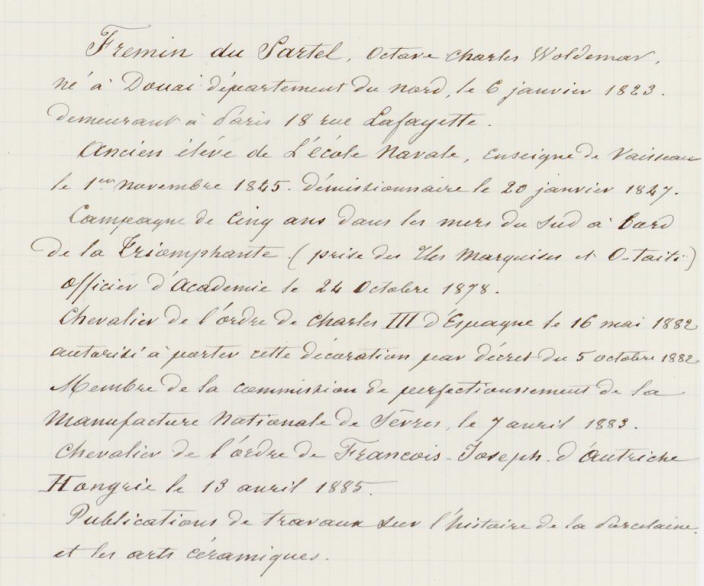 Fremin du Sartel, Octave Charles Woldemar,
né à Douai département du nord, le 6 janvier 1823.
demeurant à Paris 18 rue Lafayette.
Ancien élève de L'école Navale, Enseigne de Vaisseau
le 1er novembre 1845. démissionnaire le 20 janvier 1847.
Campagne de Cinq ans dans les mers du Sud à bord
de la Triomphante (prise des Iles Marquises et O-taiti)
officier d'Académie le 24 Octobre 1878.
Chevalier de l'ordre de Charles III d'Espagne le 16 mai 1882
autorisé à porter cette décoration par décret du 5 octobre 1882
Membre de la commission de perfectionnement de la
Manufacture Nationale de Sèvres, le 7 avril 1883.
Chevalier de l'ordre de Francois-Joseph d'Autriche
Hongrie le 13 avril 1885.
Publications de travaux sur l'histoire de la Porcelaine
et les arts céramiques.